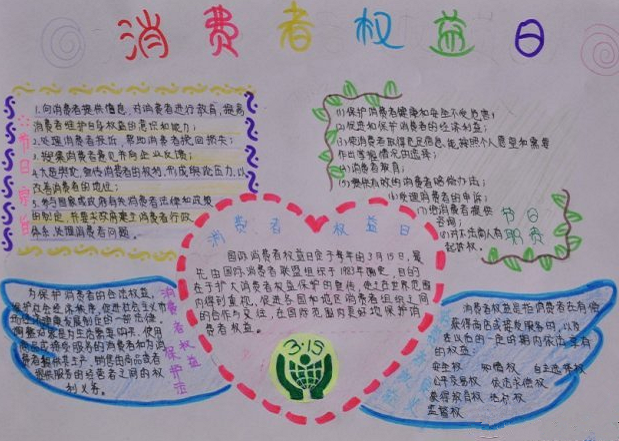 消费者权益日
节日宗旨
1.向消费者提供信息,对消费者进行教育,提高
消费者维护自身权益的意识和能力;
2.处理消费者投诉,帮助消费者挽回损失;
3.搜集消费者意见并向企业反馈;
4.大造舆论,宣传消费者的权利,形成舆论压力,以
改善消费者的地位;
5.参与国家或政府有关消费者法律和政策
的制定,并要求政府建立消费者行政
体系,处理消费者问题。
(1)保护消费者健康和安全不受危害;
(2)促进和保护消费者的经济利益;
(3)使消费者取得充足信息,能按照个人愿望和需要
作出掌握情况的选择;
(4)消费者教育;
(5)提供有效的消费者赔偿办法;
(6)处理消费者的申诉;
(7)给消费者提供
咨询;
(8)对不法商人有
起诉权。
节日
职责
消费者权益日
国际消费者权益日定于每年的3月15日,最
先由国际消费者联盟组织于1983年确定,目的
在于扩大消费者权益保护的宣传,使之在世界范围
内得到重视,促进各国和地区消费者组织之间
的合作与交往,在国际范围内更好地保护消
费者权益。
3·15
为保护消费者的合法权益,
维护社会经济秩序,促进社会主义市
场经济健康发展制定的一部法律。
调整对象是为生活需要购买、使用
商品或接受服务的消费者和为消
费者提供其生产、销售的商品或者
提供服务的经营者之间的权
利义务。
消费者权益保护法
消费者权益是指消费者在有偿
获得商品或接受服务时,以及
在以后的一定时期内依法享有
的权益:
安全权 知情权 自主选择权
公平交易权 依法求偿权
获得教育权 结社权
监督权